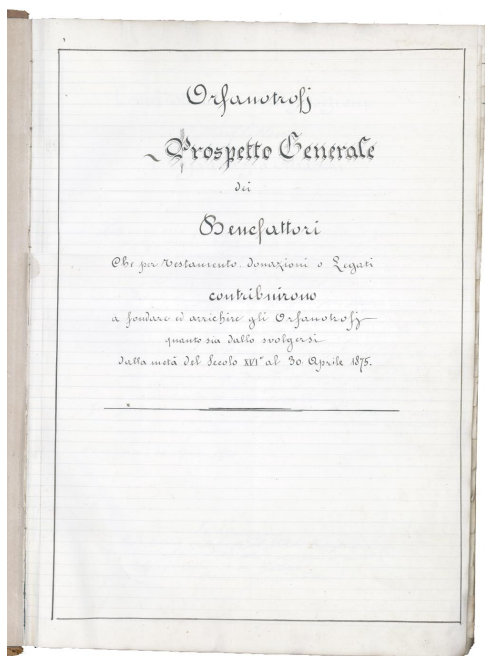 Orfanotrofj
Prospetto Generale
dei
Benefattori
Che per Testamento, donazioni o Legati
contribuirono
a fondare ed arrichire gli Orfanotrofj
quanto sia dallo svolgersi
dalla metà del Secolo XVI° al 30 Aprile 1875.